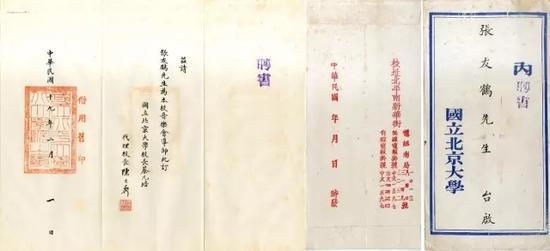 丙
聘書
張友鶴先生 台啟
國立北京大學
校址北平南新華街
電話南局
中華民國 年 月 日 時發
聘書
茲請
張友鶴先生為本校音樂會導師此訂
國立北京大學校長蔡元培
代理校長陳大齊
中華民國十九年二月一日
借用舊印